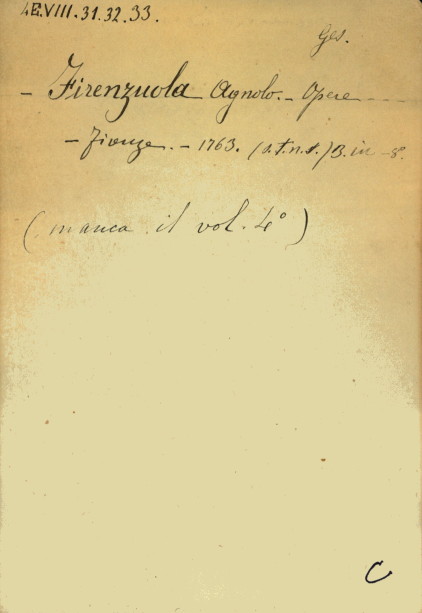 4E.VIII.31.32.33.
Ges.
- Firenzuola Agnolo. - Opere
- Firenze. - 1763. (s.t.n.t.) 3. in - 8º.
(manca il vol. 4º)
C